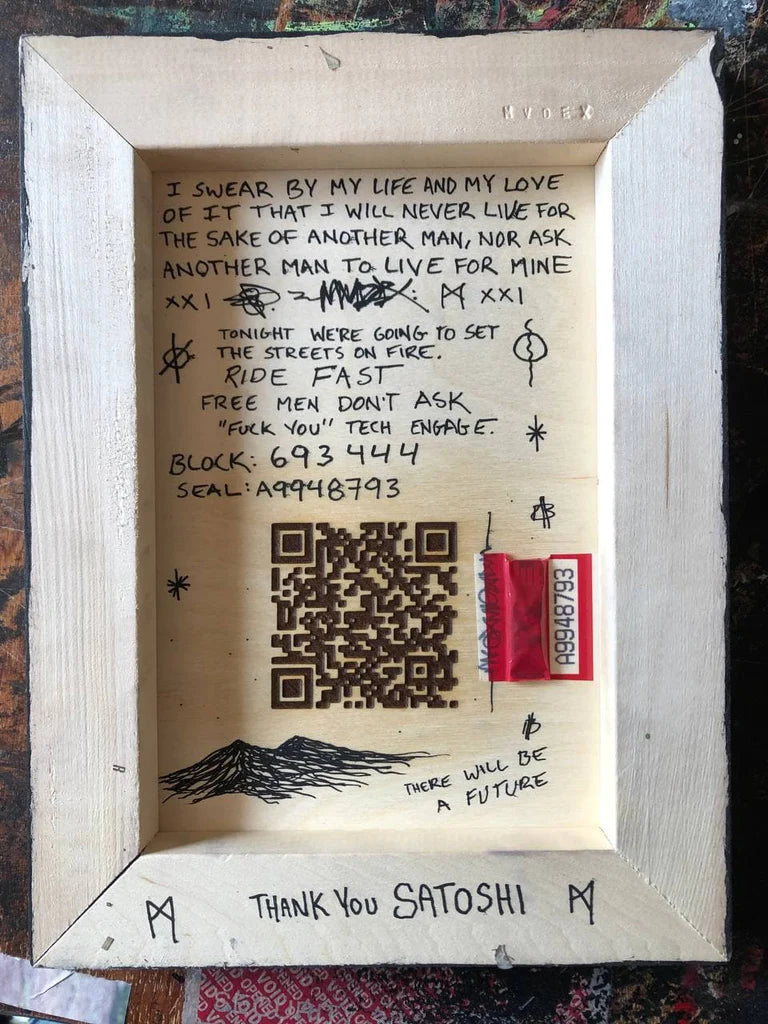 MVDEX
I SWEAR BY MY LIFE AND MY LOVE
OF IT THAT I WILL NEVER LIVE FOR
THE SAKE OF ANOTHER MAN, NOR ASK
ANOTHER MAN TO LIVE FOR MINE
XXI XXI
TONIGHT WE'RE GOING TO SET
THE STREETS ON FIRE.
RIDE FAST
FREE MEN DON'T ASK
"FUCK YOU" TECH ENGAGE.
BLOCK: 693 444
SEAL: A9948793
A9948793
THERE WILL BE
A FUTURE
THANK YOU SATOSHI